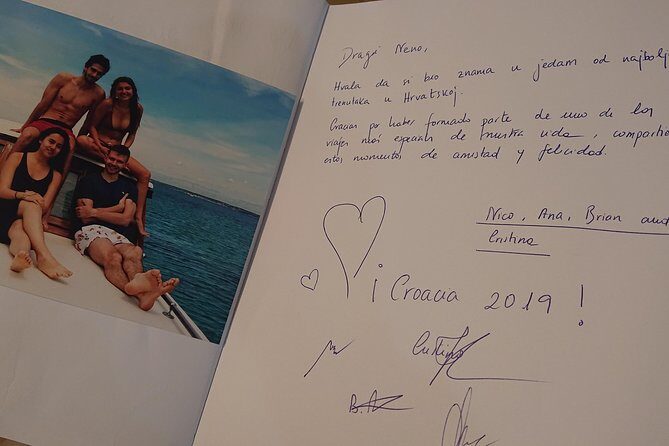 Dragi Neno,
Hvala da si bio znama u jedam od najbolj
trenutaka u Hrvatskoj.
Gracias por haber formado parte de uno de los
viajes más especiales de nuestra vida, comparti
estos momentos de amistad y felicidad.
Nico, Ana, Brian and
Cristina
¡Croacia 2019!
Cristina